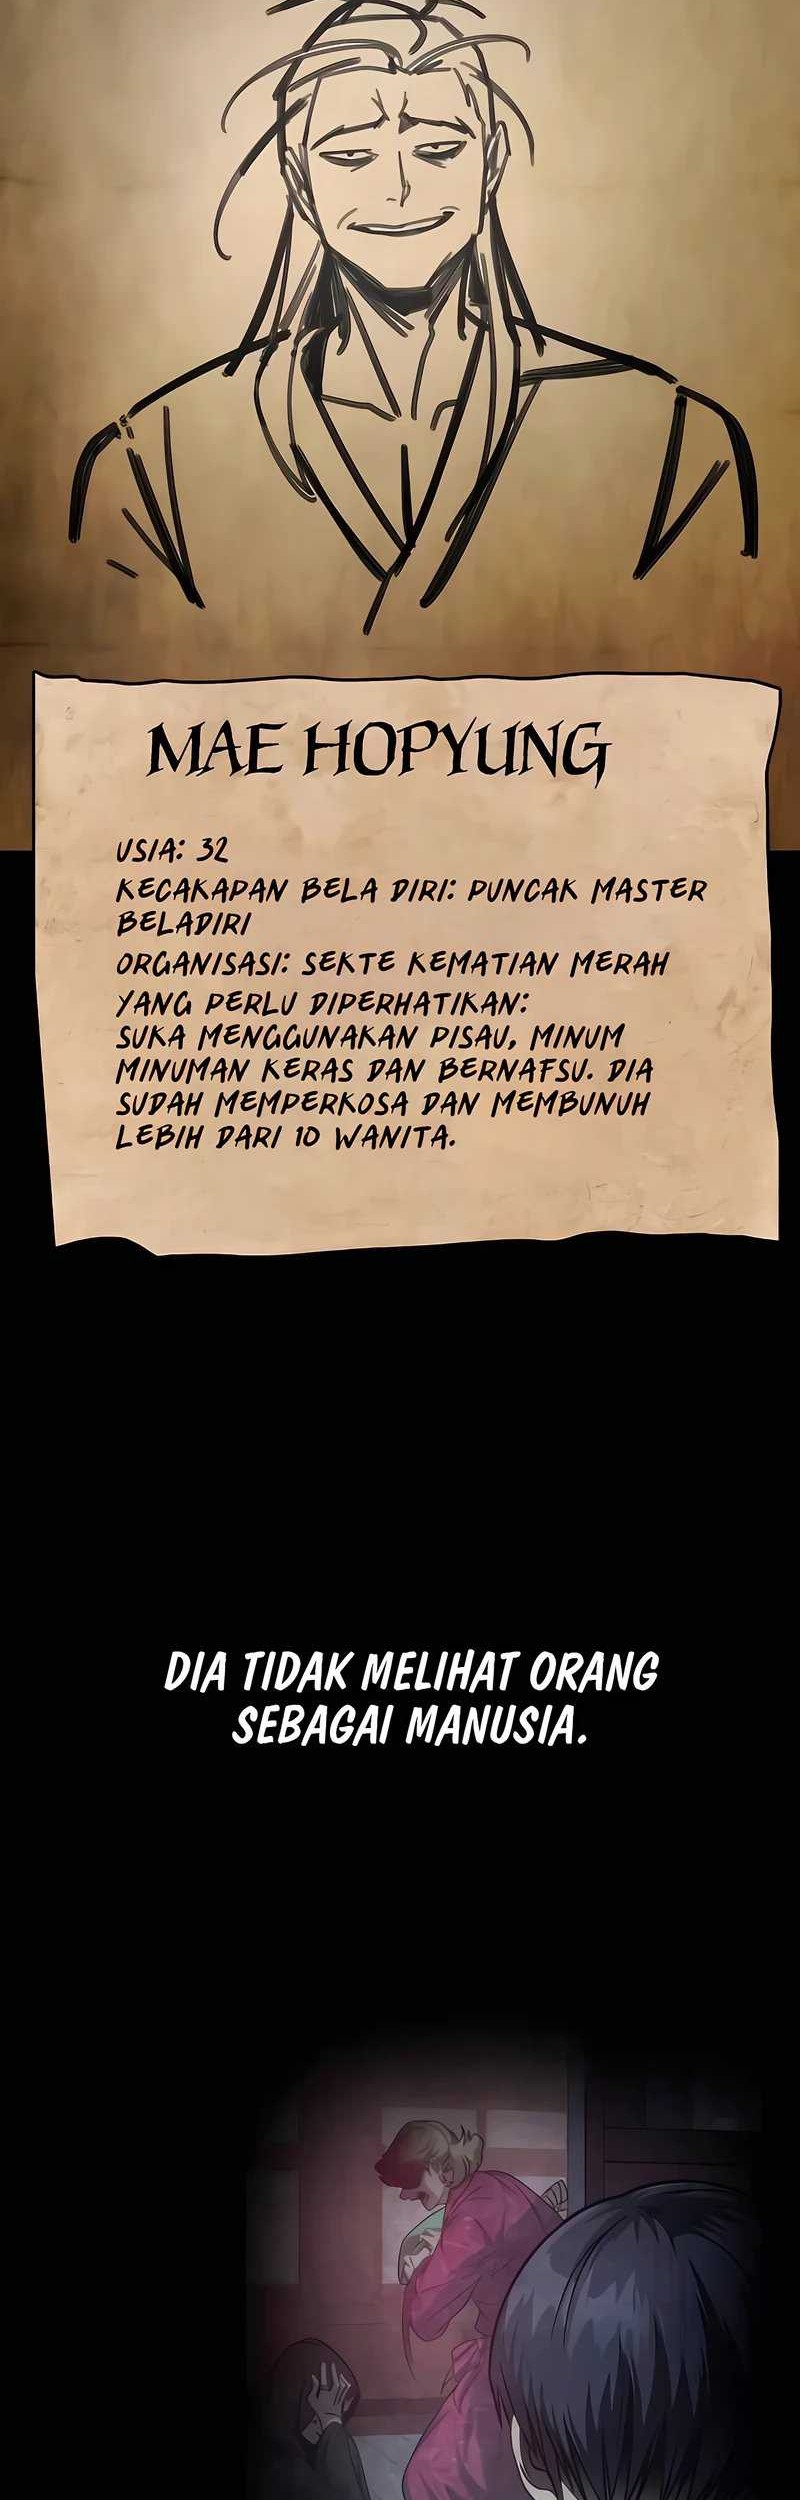 MAE HOPYUNG
USIA: 32
KECAKAPAN BELA DIRI: PUNCAK MASTER
BELADIRI
ORGANISASI: SEKTE KEMATIAN MERAH
YANG PERLU DIPERHATIKAN:
SUKA MENGGUNAKAN PISAU, MINUM
MINUMAN KERAS DAN BERNAFSU. DIA
SUDAH MEMPERKOSA DAN MEMBUNUH
LEBIH DARI 10 WANITA.
DIA TIDAK MELIHAT ORANG
SEBAGAI MANUSIA.